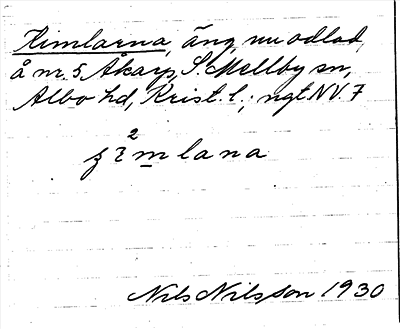 Kimlarna, äng, nu odlad,
å nr. 5 Åkarp, S. Mellby sn,
Albo hd, Krist. l.; ngt NV. 7
mlana
Nils Nilsson 1930